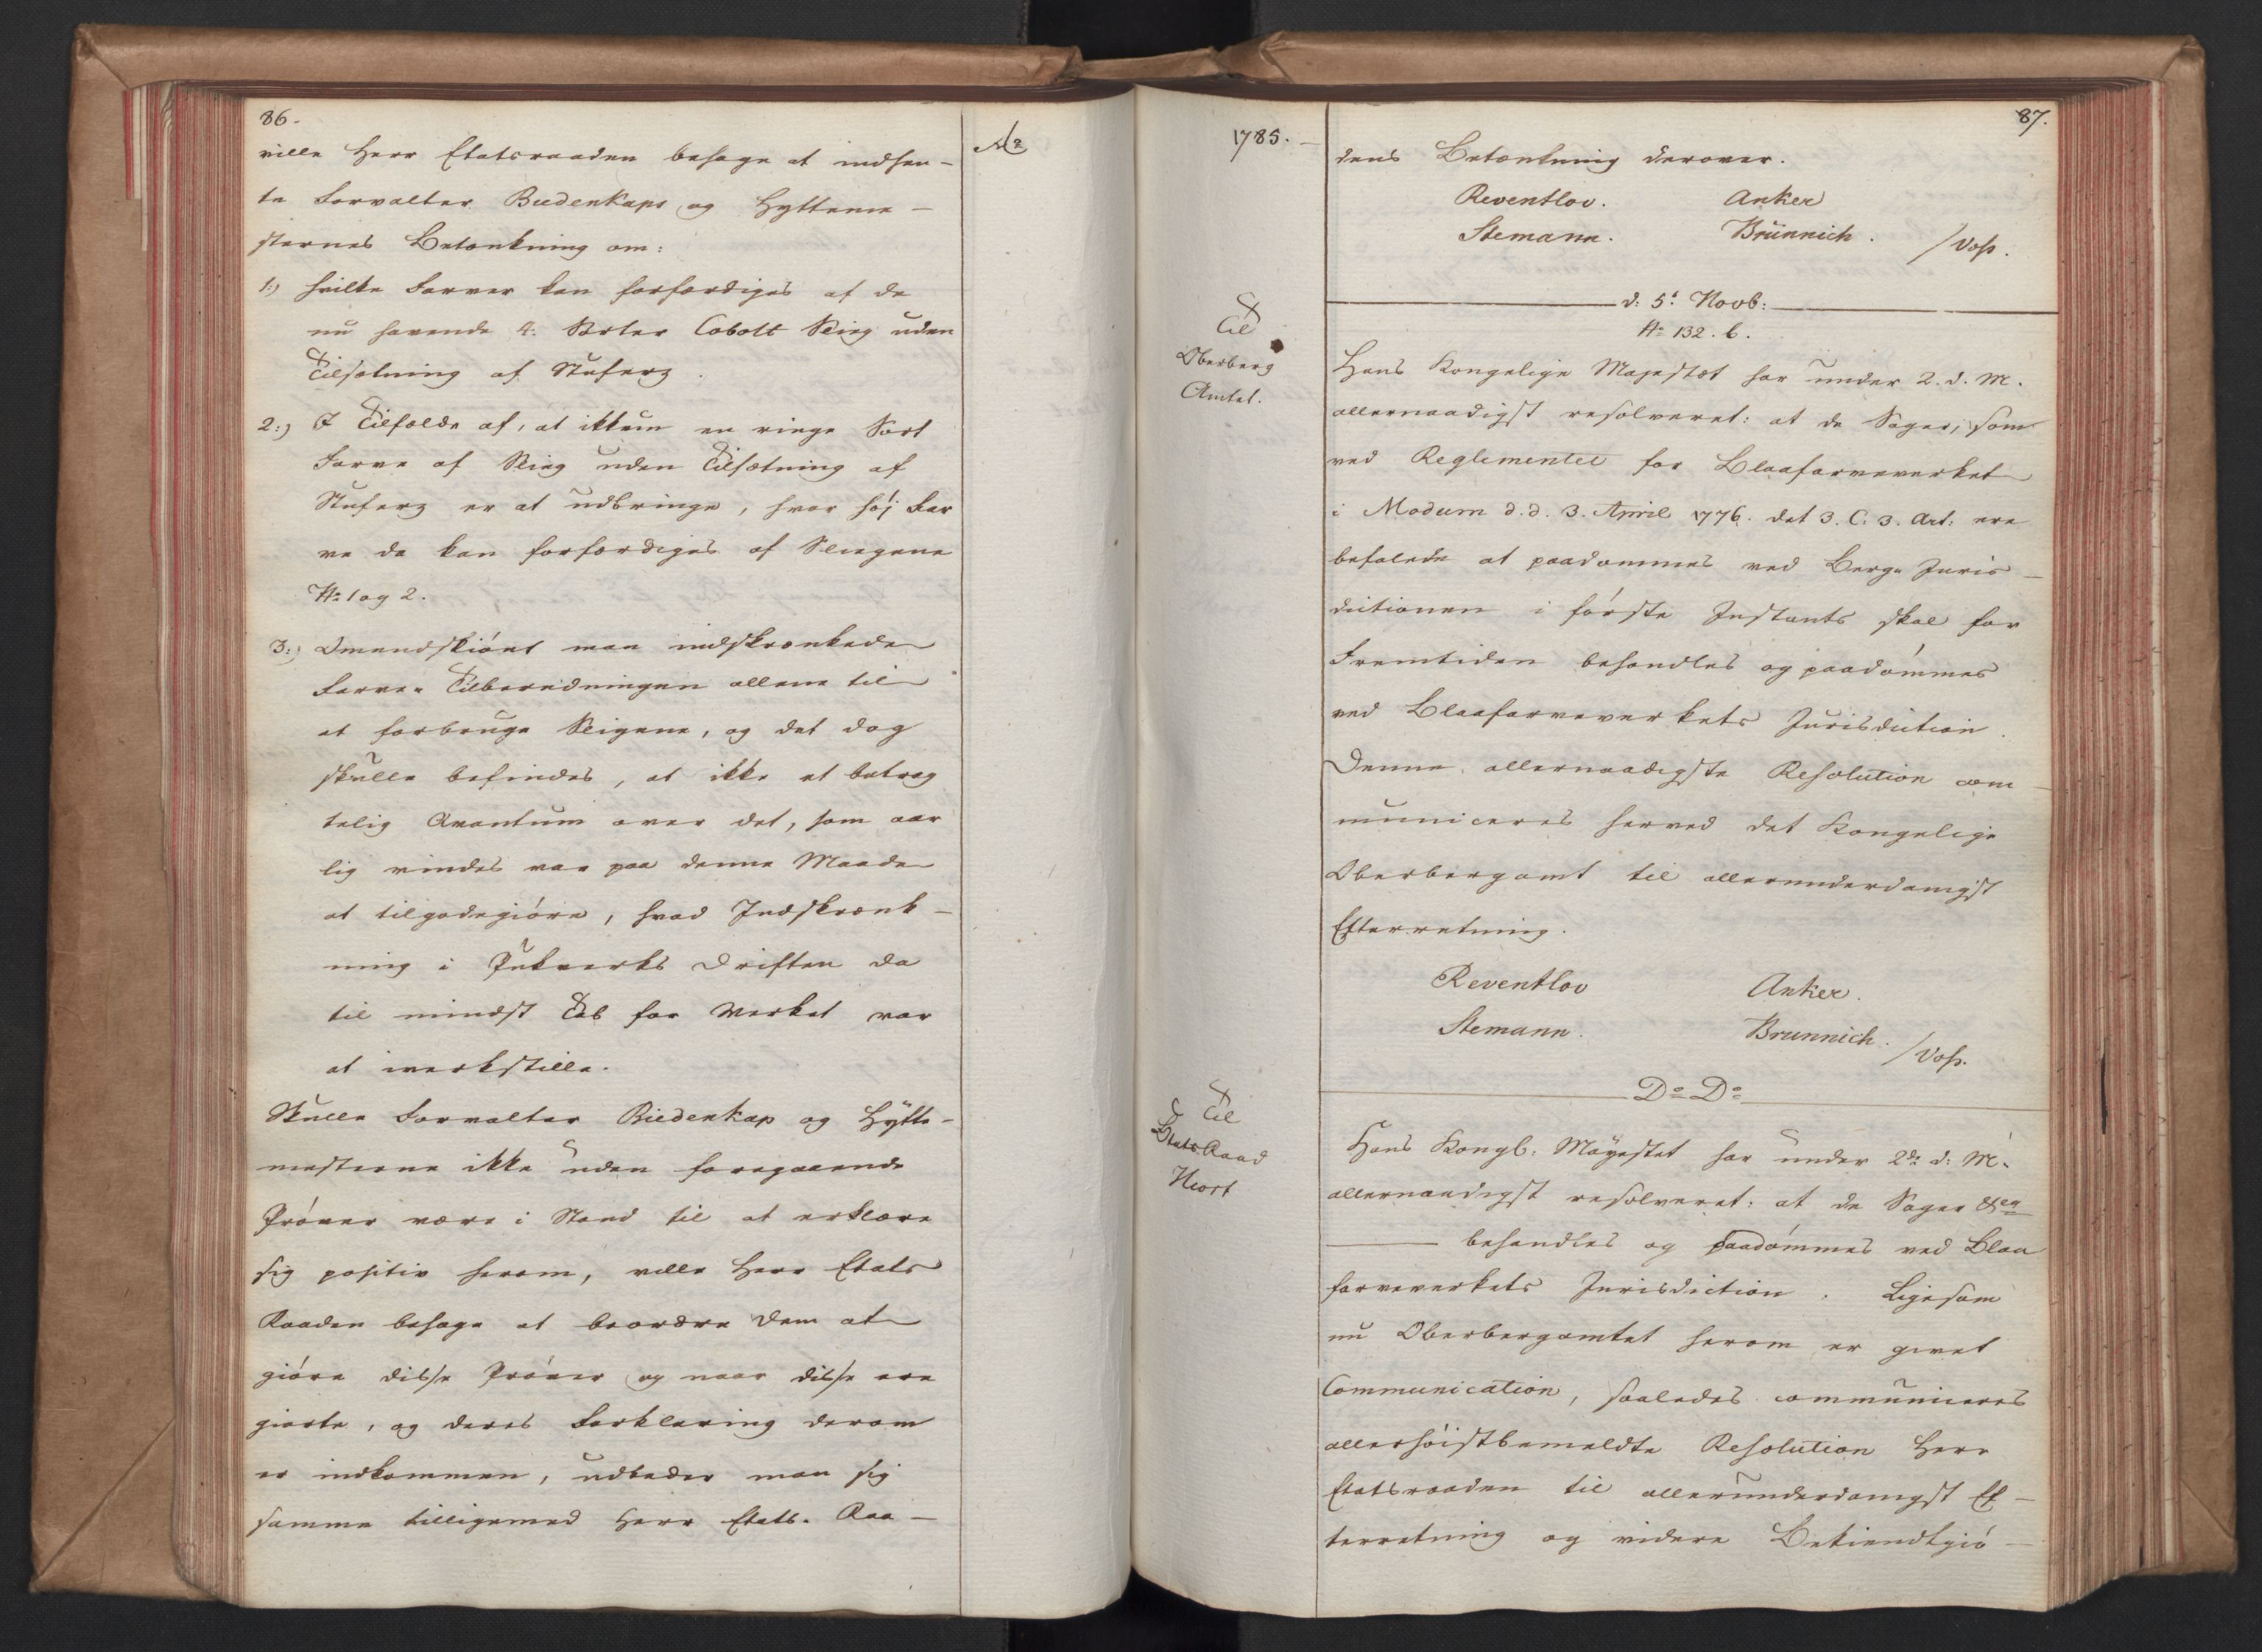 86.
ville Herr Etatsraaden behage at indhen-
te Forvalter Biedenkaps og Hytteme-
sternes Betænkning om:
1:) hvilke Farver kan forfærdiges af de
nu havende 4. Sorter Cobolt Slieg uden
Tilsætning af Stuferz.
2:) I Tilfælde af, at ikkun en ringe Sort
Farve af Slieg uden Tilsætning af
Stuferz er at udbringe, hvor høj Far
ve da kan forfærdiges af Sliegene
No 1 og 2.
3:) Omendskiønt man indskrænkede
Farve-Tilberedningen allene til
at forbruge Sliegene, og det dog
skulle befindes, at ikke et betrag
telig Qvantum over det, som aar
lig vindes var paa denne Maade
at tilgodegiøre, hvad Indskrænk-
ning i Pukverks Driften da
til mindst Tab for Verket var
at iverkstille.
Skulle Forvalter Biedenkap og Hytte-
mesterne ikke uden foregaaende
Prøver være i Stand til at erklære
sig positiv herom, ville Herr Etats
Raaden behage at beordre dem at
giøre disse Prøver og naar disse ere
giorte, og deres Forklaring derom
er indkommen, udbeder man sig
samme tilligemed Herr Etats-Raa-
1785.
87.
dens Betænkning derover.
Reventlov. Anker
Stemann. Brünnich. /Voss.
d: 5t Novb:
No 132. b.
Til
Oberberg
Amtet.
Hans Kongelige Majestæt har under 2. d. M.
allernaadigst resolveret: at de Sager, som
ved Reglementet for Blaafarveverket
i Modum d. d. 3. April 1776. det 3. C. 3. Art: ere
befalede at paadømmes ved Berg-Juris-
dictionen i første Instants skal for
Fremtiden behandles og paadømmes
ved Blaafarveverkets Jurisdiction.
Denne allernaadigste Resolution com-
municeres herved det Kongelige
Oberbergamt til allerunderdanigst
Efterretning.
Reventlov Anker.
Stemann. Brunnich. /Voss.
Do Do
Til
Etats Raad
Hiort
Hans Kongl: Mayestet har under 2de d: M.
allernaadigst resolveret: at de Sager
behandles og paadømmes ved Blaa
farveverkets Jurisdiction. Ligesom
nu Oberbergamtet herom er givet
Communication, saaledes communiceres
allerhøistbemeldte Resolution Herr
Etatsraaden til allerunderdanigst Ef-
terretning og videre Bekiendtgiø-